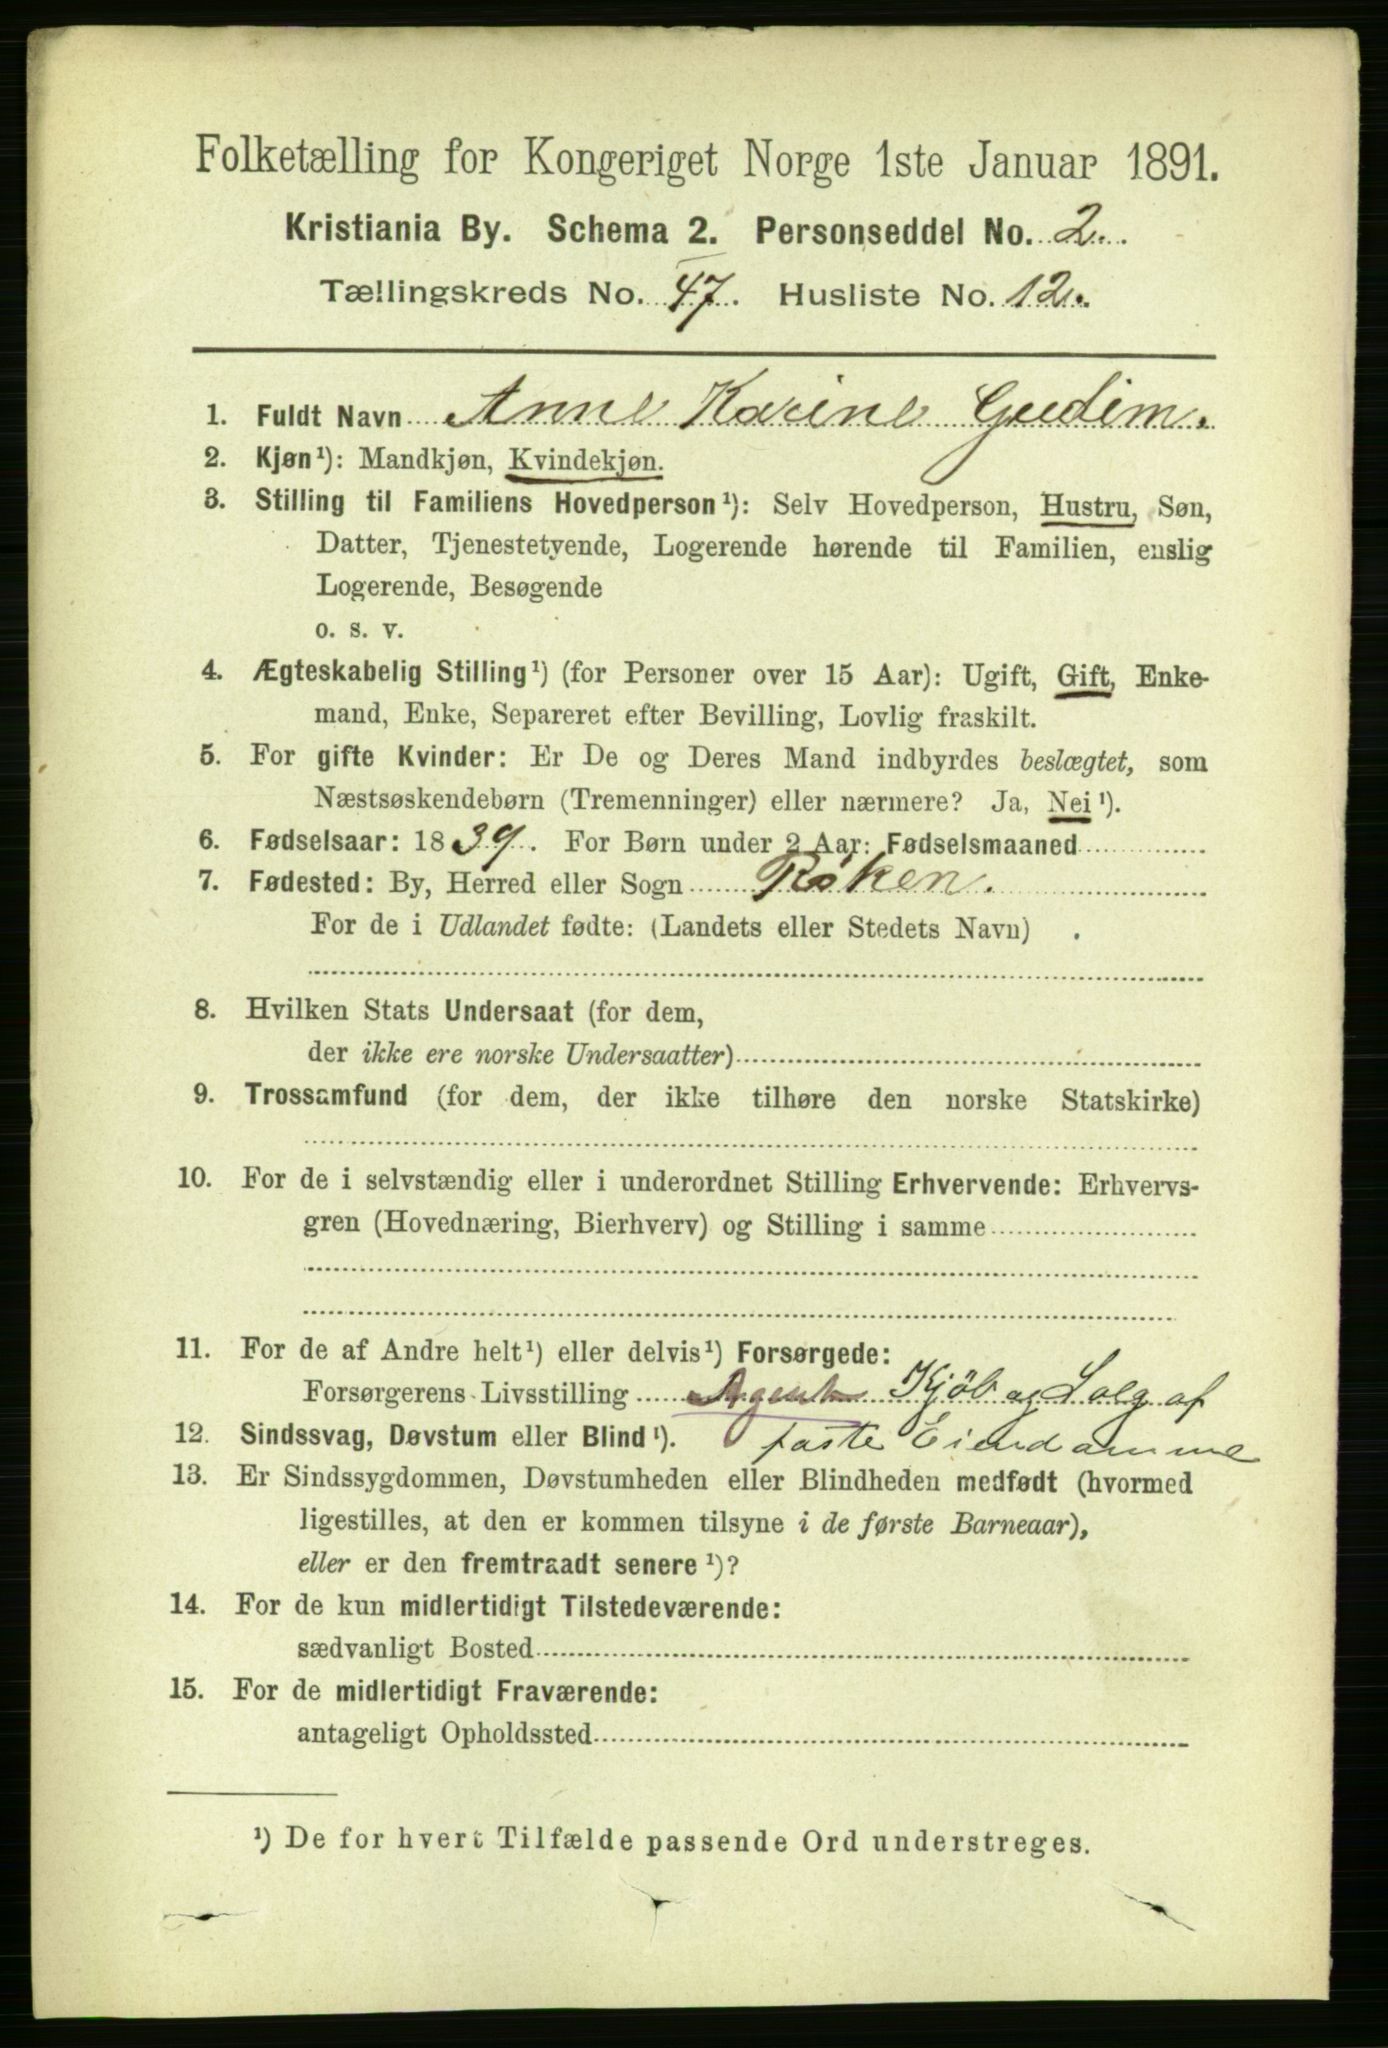 Folketælling for Kongeriget Norge 1ste Januar 1891.
Kristiania By. Schema 2. Personseddel No. 2.
Tællingskreds No. 47. Husliste No. 12.
1. Fuldt Navn Anne Karine Gudim.
2. Kjøn¹): Mandkjøn, Kvindekjøn.
3. Stilling til Familiens Hovedperson¹): Selv Hovedperson, Hustru, Søn,
Datter, Tjenestetyende, Logerende hørende til Familien, enslig
Logerende, Besøgende
o. s. v.
4. Ægteskabelig Stilling¹) (for Personer over 15 Aar): Ugift, Gift, Enke-
mand, Enke, Separeret efter Bevilling, Lovlig fraskilt.
5. For gifte Kvinder: Er De og Deres Mand indbyrdes beslægtet, som
Næstsøskendebørn (Tremenninger) eller nærmere? Ja, Nei¹).
6. Fødselsaar: 1839. For Børn under 2 Aar: Fødselsmaaned
7. Fødested: By, Herred eller Sogn Røken.
For de i Udlandet fødte: (Landets eller Stedets Navn)
8. Hvilken Stats Undersaat (for dem,
der ikke ere norske Undersaatter)
9. Trossamfund (for dem, der ikke tilhøre den norske Statskirke)
10. For de i selvstændig eller i underordnet Stilling Erhvervende: Erhvervs-
gren (Hovednæring, Bierhverv) og Stilling i samme
11. For de af Andre helt¹) eller delvis¹) Forsørgede:
Forsørgerens Livsstilling Agent Kjöb og Salg af
12. Sindssvag, Døvstum eller Blind¹). faste Eiendomme
13. Er Sindssygdommen, Døvstumheden eller Blindheden medfødt (hvormed
ligestilles, at den er kommen tilsyne i de første Barneaar),
eller er den fremtraadt senere¹)?
14. For de kun midlertidigt Tilstedeværende:
sædvanligt Bosted
15. For de midlertidigt Fraværende:
antageligt Opholdssted
¹) De for hvert Tilfælde passende Ord understreges.